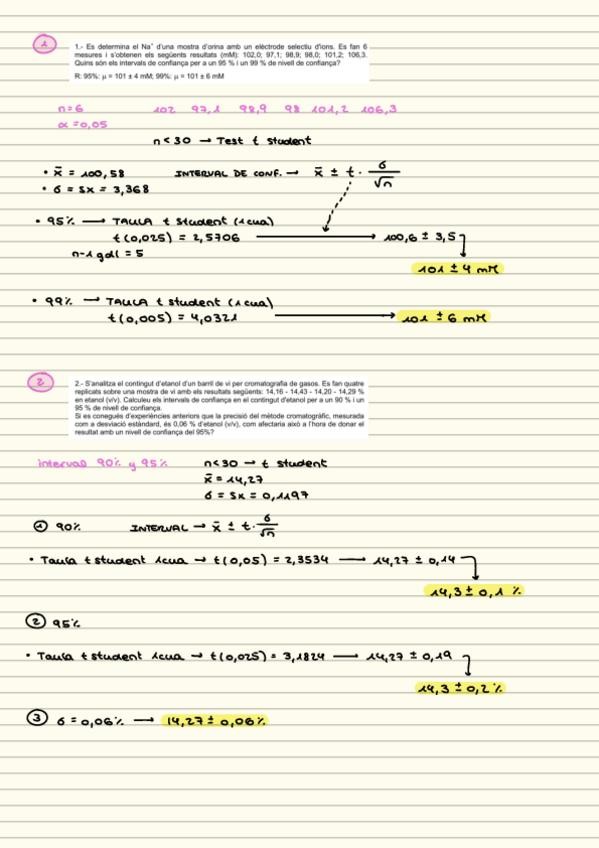 1
1.- Es determina el Na+ d'una mostra d'orina amb un elèctrode selectiu d'ions. Es fan 6
mesures i s'obtenen els següents resultats (mM): 102,0; 97,1; 98,9; 98,0; 101,2; 106,3.
Quins són els intervals de confiança per a un 95 % i un 99 % de nivell de confiança?
R: 95%: μ = 101 ± 4 mM; 99%: μ = 101 ± 6 mM
n=6 102 97,1 98,9 98 101,2 106,3
α=0,05
n<30 → Test t student
• x̄ = 100,58 INTERVAL DE CONF. → x̄ ± t · σ/√n
• σ = sx = 3,368
• 95% → TAULA t student (1 cua)
t(0,025) = 2,5706 → 100,6 ± 3,5
n-1 gdl = 5
101 ± 4 mM
• 99% → TAULA t student (1 cua)
t(0,005) = 4,0321 → 101 ± 6 mM
2
2.- S'analitza el contingut d'etanol d'un barril de vi per cromatografia de gasos. Es fan quatre
replicats sobre una mostra de vi amb els resultats següents: 14,16 - 14,43 - 14,20 - 14,29 %
en etanol (v/v). Calculeu els intervals de confiança en el contingut d'etanol per a un 90 % i un
95 % de nivell de confiança.
Si es conegués d'experiències anteriors que la precisió del mètode cromatogràfic, mesurada
com a desviació estàndard, és 0,06 % d'etanol (v/v), com afectaria això a l'hora de donar el
resultat amb un nivell de confiança del 95%?
interval 90% y 95% n<30 → t student
x̄ = 14,27
σ = sx = 0,1197
① 90% INTERVAL → x̄ ± t · σ/√n
• Taula t student 1 cua → t(0,05) = 2,3534 → 14,27 ± 0,14
14,3 ± 0,1 %
② 95%
• Taula t student 1 cua → t(0,025) = 3,1824 → 14,27 ± 0,19
14,3 ± 0,2 %
③ σ = 0,06% → 14,27 ± 0,06%